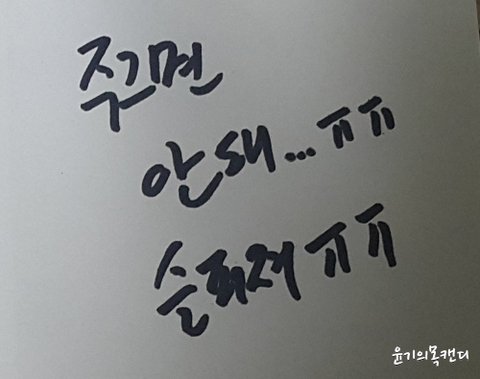 안돼...ㅠㅠ
슬퍼져ㅠㅠ
윤기의목캔디